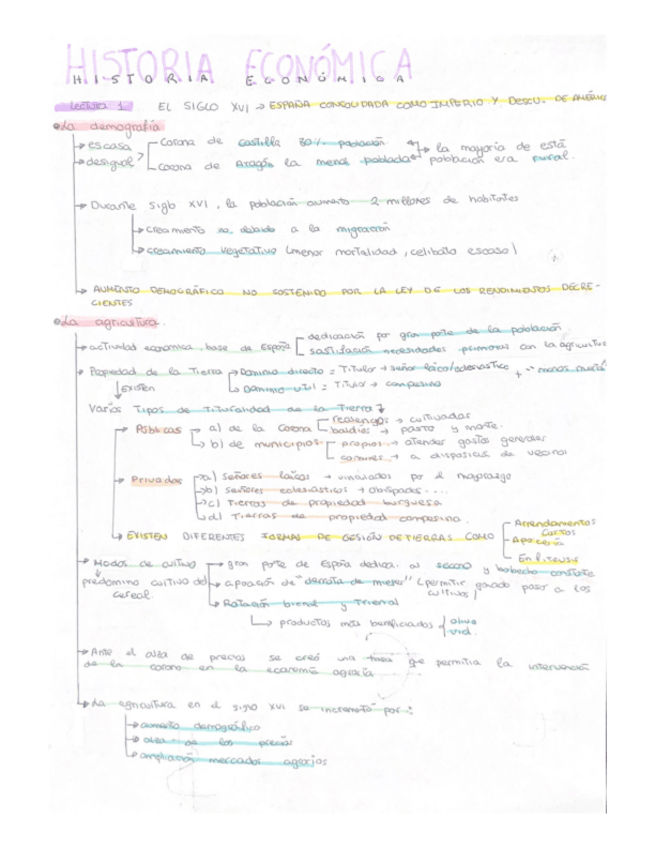 HISTORIA ECONÓMICA
HISTORIA ECONÓMICA
LECTURA 1 EL SIGLO XVI → ESPAÑA CONSOLIDADA COMO IMPERIO Y DESCU. DE AMÉRICA
La demografía
→ escasa Corona de Castilla 80% población → la mayoría de está
→ desigual Corona de Aragón la menos poblada población era rural.
→ Durante siglo XVI, la población aumento 2 millones de habitantes
→ crecimiento no debido a la migración
→ crecimiento vegetativo (menor mortalidad, celibato escaso)
→ AUMENTO DEMOGRÁFICO NO SOSTENIDO POR LA LEY DE LOS RENDIMIENTOS DECRE-
CIENTES
La agricultura.
dedicación por gran parte de la población
→ actividad económica base de España
satisfacción necesidades primarias con la agricultura
→ Propiedad de la Tierra → Dominio directo = Titular → señor laico/eclesiástico + "manos muertas"
EXISTEN → Dominio util = Titular → campesino
Varios Tipos de Titularidad de la Tierra
→ Públicas → a) de la Corona realengos → cultivadas
baldíos → pasto y monte.
→ b) de municipios propios → atender gastos generales
comunes → a disposición de vecinos
→ Privadas → a) Señores laicos → vinculados por el mayorazgo
→ b) señores eclesiásticos → obispados....
→ c) Tierras de propiedad burguesa
→ d) Tierras de propiedad campesina.
→ EXISTEN DIFERENTES FORMAS DE CESIÓN DE TIERRAS COMO Arrendamentos
cortos
Aparcería
Enfiteusis
→ Modos de cultivo → gran parte de España dedica. al secano y barbecho constante
predominio cultivo del cereal. → aprobación de "derrota de mieses" (permitir ganado paso a los
cultivos)
→ Rotación bienal y Trienal
→ productos más beneficiados olivo
vid.
→ Ante el alza de precios se creó una tasa que permitia la intervención
de la corona en la economía agraria
→ La agricultura en el siglo XVI se incrementó por:
→ aumento demográfico
→ alza de los precios
→ ampliación mercados agrarios